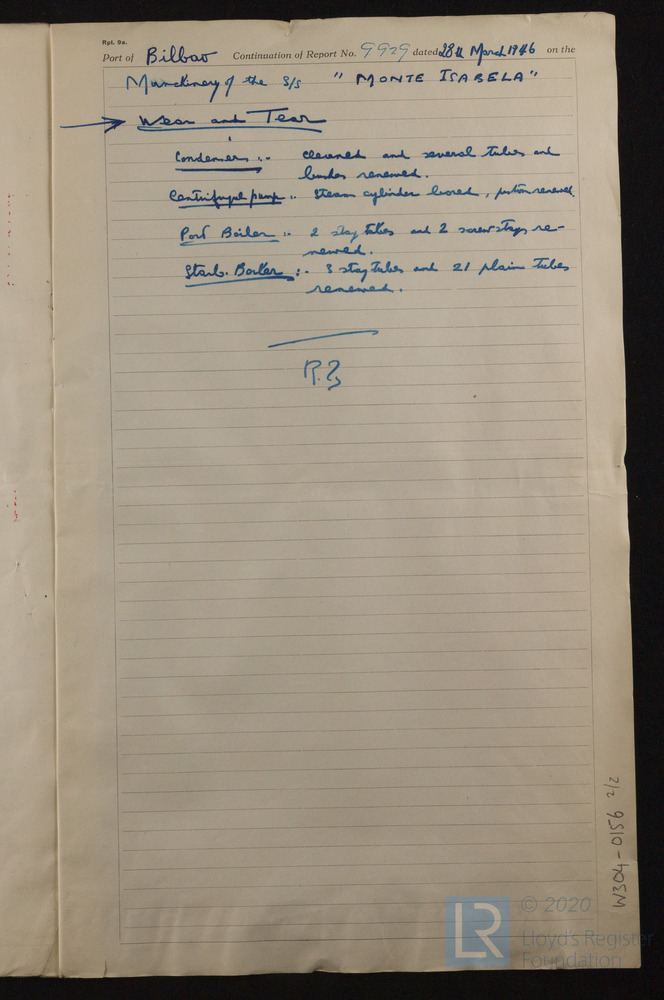 Rpt. 9a.
Port of Bilbao Continuation of Report No. 9929 dated 28th March 1946 on the
Machinery of the S/S "MONTE ISABELA"
Wear and Tear
Condenser :. cleaned and several tubes and
bushes renewed.
Centrifugal pump :. Steam cylinder bored, piston renewed.
Port Boiler :. 2 stay tubes and 2 screw stays re-
newed.
Starb. Boiler :. 3 stay tubes and 21 plain tubes
renewed.
W304-0156 2/2
LR
© 2020
Lloyd's Register
Foundation